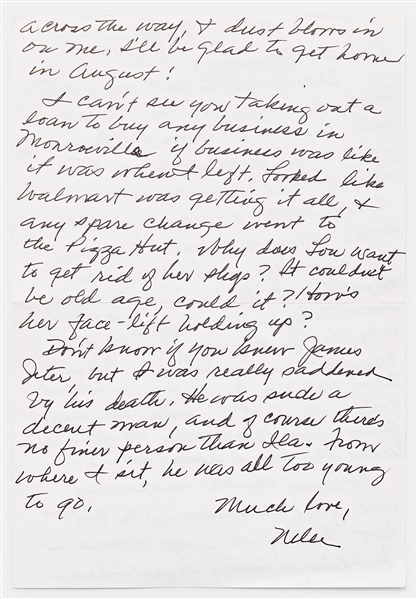 across the way, & dust blows in
on me. I'll be glad to get home
in August!
I can't see you taking out a
loan to buy any business in
Monroeville if business was like
it was when I left. Looked like
Walmart was getting it all, &
any spare change went to
the Pizza Hut. Why does Lou want
to get rid of her shop? It couldn't
be old age, could it? How's
her face-lift holding up?
Don't know if you knew James
but I was really saddened
by his death. He was such a
decent man, and of course there's
no finer person than Ila. From
where I sit, he was all too young
to go.
Much love,
Nelle